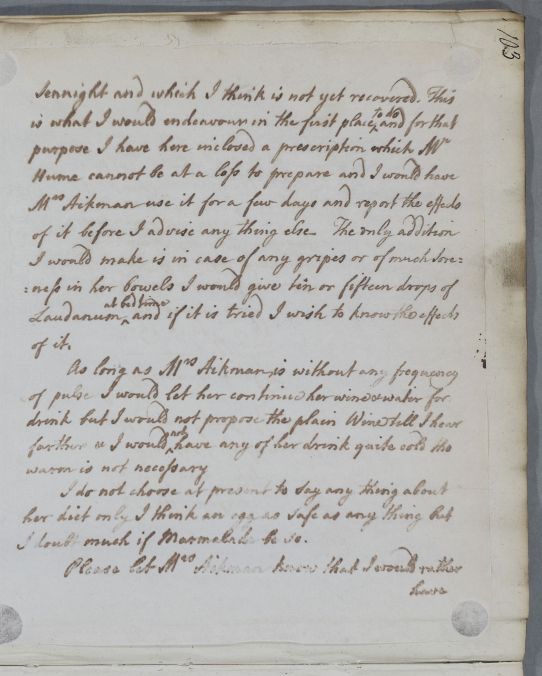 103
Sennight and which I think is not yet recovered. This
is what I would endeavour in the first place to do and for that
purpose I have here inclosed a prescription which Mr
Hume cannot be at a loss to prepare and I would have
Mrs Aikman use it for a few days and report the effects
of it before I advise any thing else. The only addition
I would make is in case of any gripes or of much Sore=
=ness in her bowels I would give ten or fifteen drops of
Laudanum at bed time and if it is tried I wish to know the effects
of it.
As long as Mrs Aikman is without any frequency
of pulse I would let her continue her wine & water for
drink but I would not propose the plain Wine till I hear
farther & I would not have any of her drink quite cold tho
warm is not necessary
I do not choose at present to say any thing about
her diet only I think an egg as safe as any thing but
I doubt much if Marmalade be so.
Please let Mrs Aikman know that I would rather
have